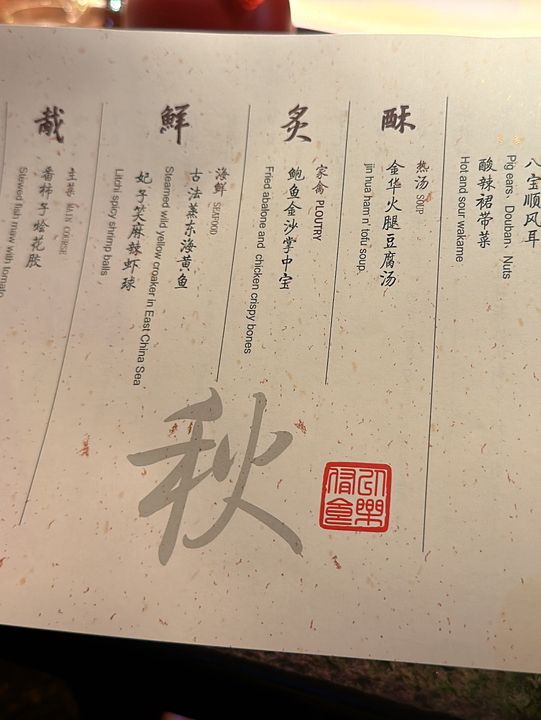 八宝顺风耳
Pig ears、Douban、Nuts
酸辣裙带菜
Hot and sour wakame
酥
热汤 SOUP
金华火腿豆腐汤
jin hua ham n' tofu soup.
炙
家禽 PLOUTRY
鲍鱼金沙掌中宝
Fried abalone and chicken crispy bones
鮮
海鲜 SEAFOOD
古法蒸东海黄鱼
Steamed wild yellow croaker in East China Sea
妃子笑麻辣虾球
Litchi spicy shrimp balls
主菜 MAIN COURSE
番柿子烩花胶
Stewed fish maw with tomato
秋